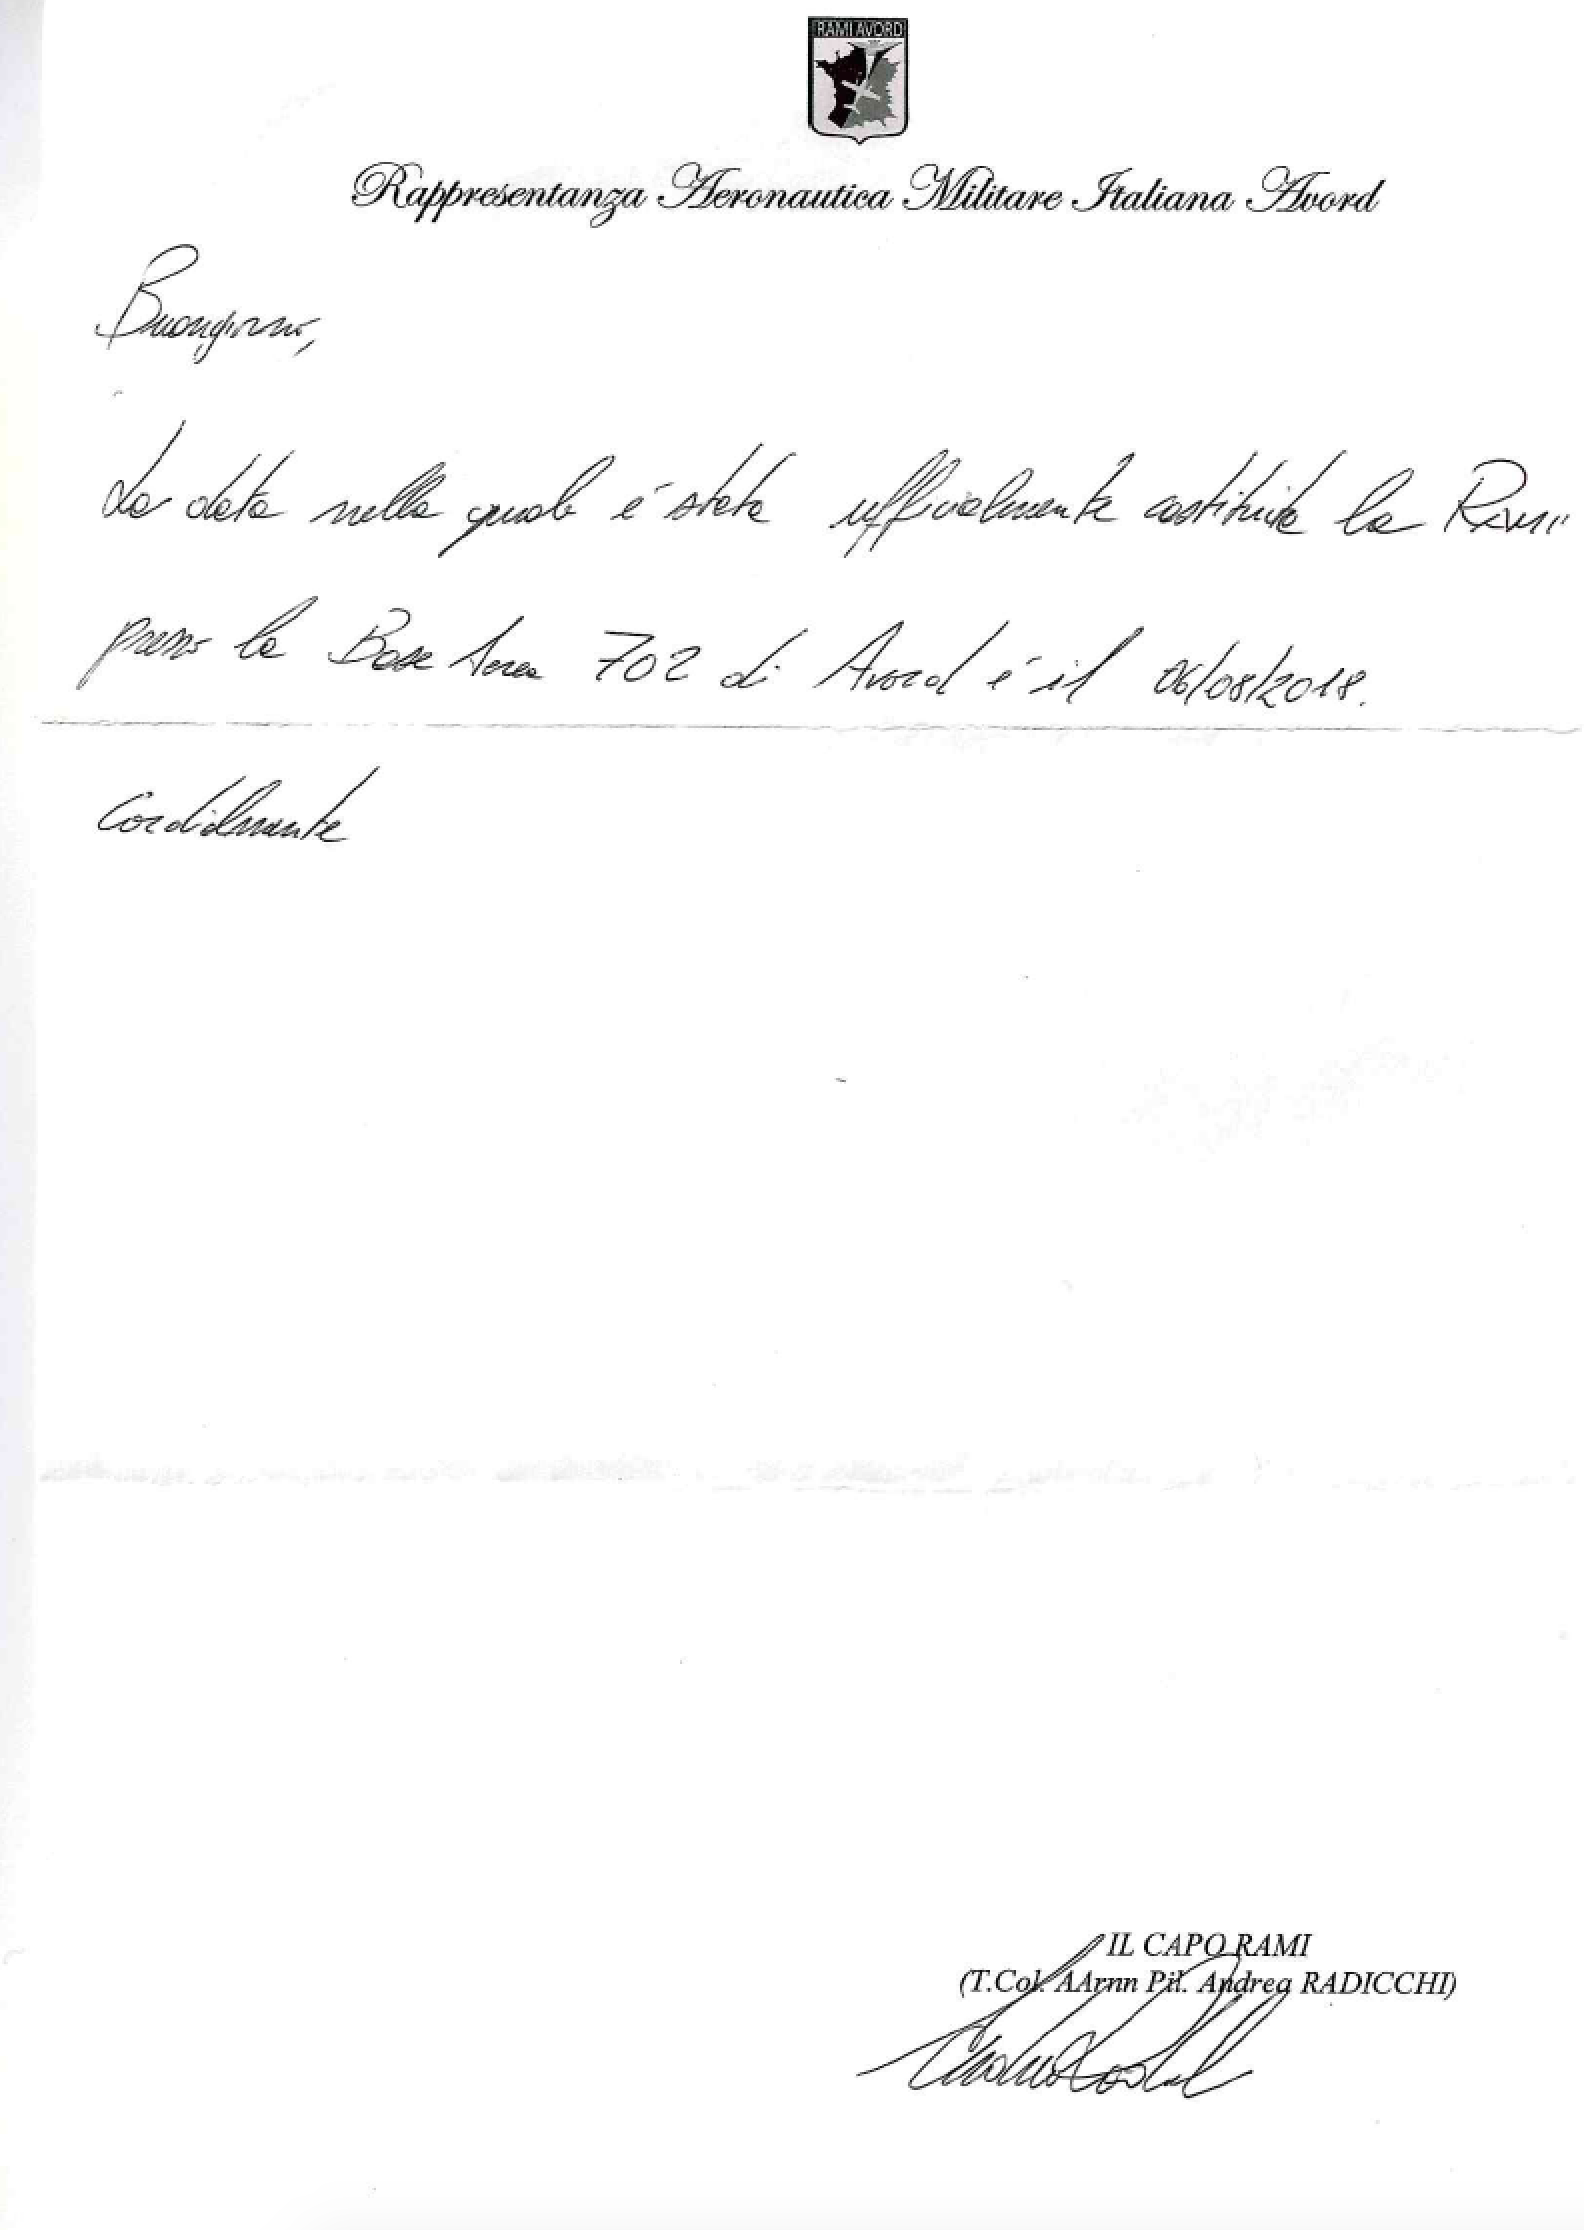 RAMI AVORD
Rappresentanza Aeronautica Militare Italiana Avord
Buongiorno,
La data nella quale é stata ufficialmente costituita la RAMI
presso la Base Aerea 702 di Avord é il 06/08/2018.
Cordialmente
IL CAPO RAMI
(T.Col. AArnn Pil. Andrea RADICCHI)